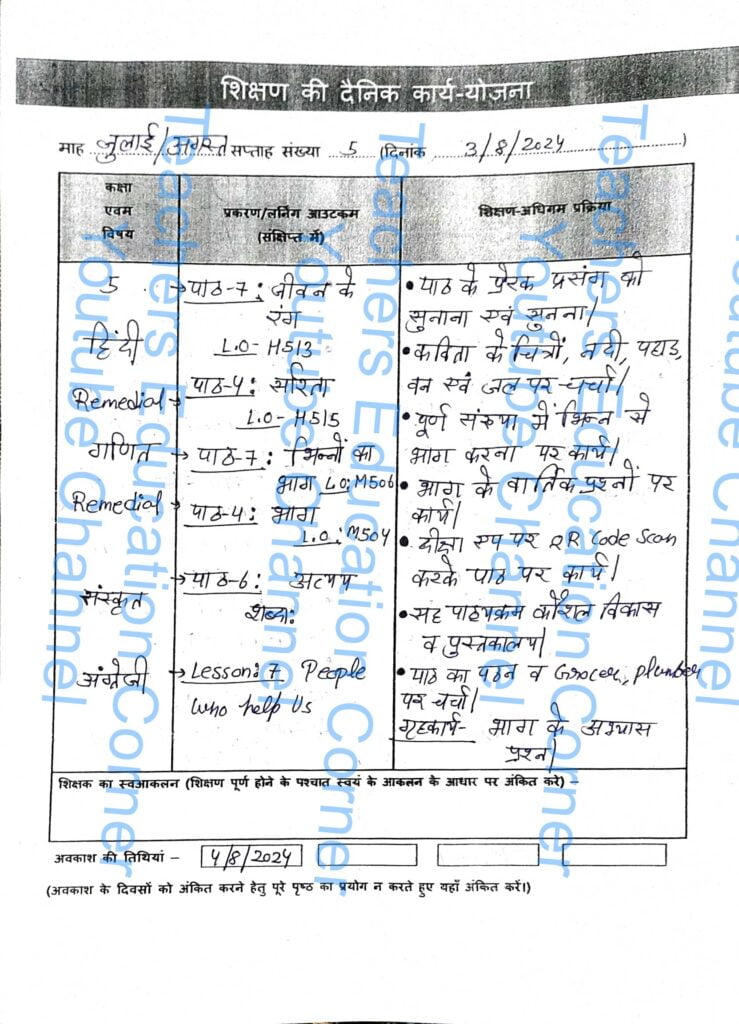 शिक्षण की दैनिक कार्य-योजना
माह जुलाई/अगस्त सप्ताह संख्या 5 (दिनांक 3/8/2024)
कक्षा
एवम
विषय
प्रकरण/लर्निंग आउटकम
(संक्षिप्त में)
शिक्षण-अधिगम प्रक्रिया
5
हिंदी
Remedial →
गणित
Remedial
संस्कृत
अंग्रेजी
→ पाठ-7: जीवन के
रंग
L.O- H513
पाठ-4: सरिता
L.O- H515
→ पाठ-7: भिन्नों का
भाग L.O: M506
→ पाठ-4: भाग
L.O: M504
→ पाठ-6: अव्यय
शब्दाः
→ Lesson: 7 People
who help Us
• पाठ के प्रेरक प्रसंग को
सुनाना एवं सुनना।
• कविता के चित्रों, नदी, पहाड़,
वन एवं जल पर चर्चा।
• पूर्ण संख्या में भिन्न से
भाग करना पर कार्य।
• भाग के वार्तिक प्रश्नों पर
कार्य।
• दीक्षा एप पर QR Code Scan
करके पाठ पर कार्य।
• सह पाठ्यक्रम कौशल विकास
व पुस्तकालय।
• पाठ का पठन व Grocer, plumber
पर चर्चा।
गृहकार्य- भाग के अभ्यास
प्रश्न।
शिक्षक का स्वआकलन (शिक्षण पूर्ण होने के पश्चात स्वयं के आकलन के आधार पर अंकित करे) –
अवकाश की तिथियां – 4/8/2024
(अवकाश के दिवसों को अंकित करने हेतु पूरे पृष्ठ का प्रयोग न करते हुए यहाँ अंकित करें।)
Teachers Education Corner
Youtube Channel
Teachers Education Corner
Youtube Channel
Teachers Education Corner
Youtube Channel